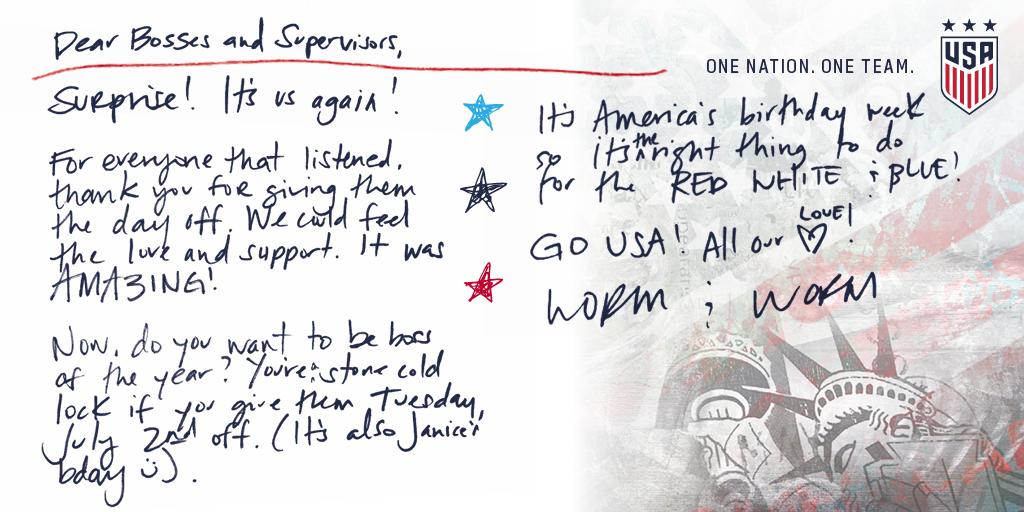 Dear Bosses and Supervisors,
Surprise! It's us again!
For everyone that listened,
thank you for giving them
the day off. We could feel
the love and support. It was
AMAZING!
Now, do you want to be boss
of the year? You're a stone cold
lock if you give them Tuesday,
July 2nd off. (It's also Janice's
bday :)).
ONE NATION. ONE TEAM.
USA
It's America's birthday week
so it's the right thing to do
for the RED WHITE & BLUE!
GO USA! All our LOVE! !
WORM & WORM